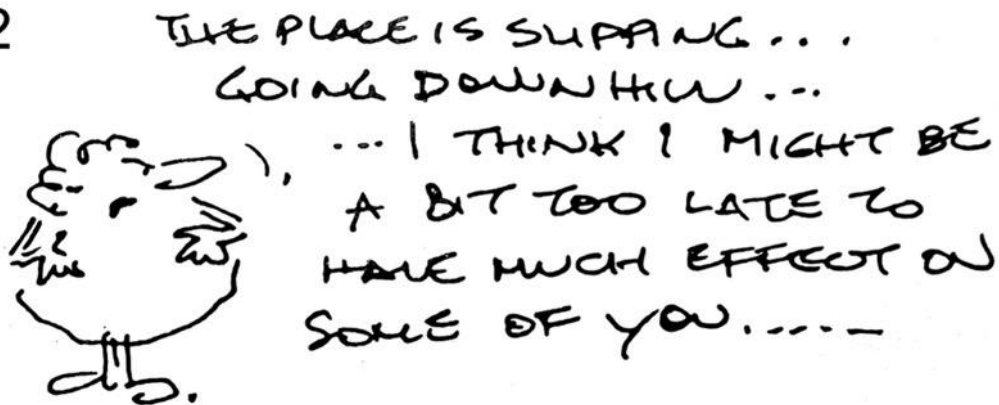 2 THE PLACE IS SLIPPING...
GOING DOWNHILL...
...I THINK I MIGHT BE
A BIT TOO LATE TO
HAVE MUCH EFFECT ON
SOME OF YOU......